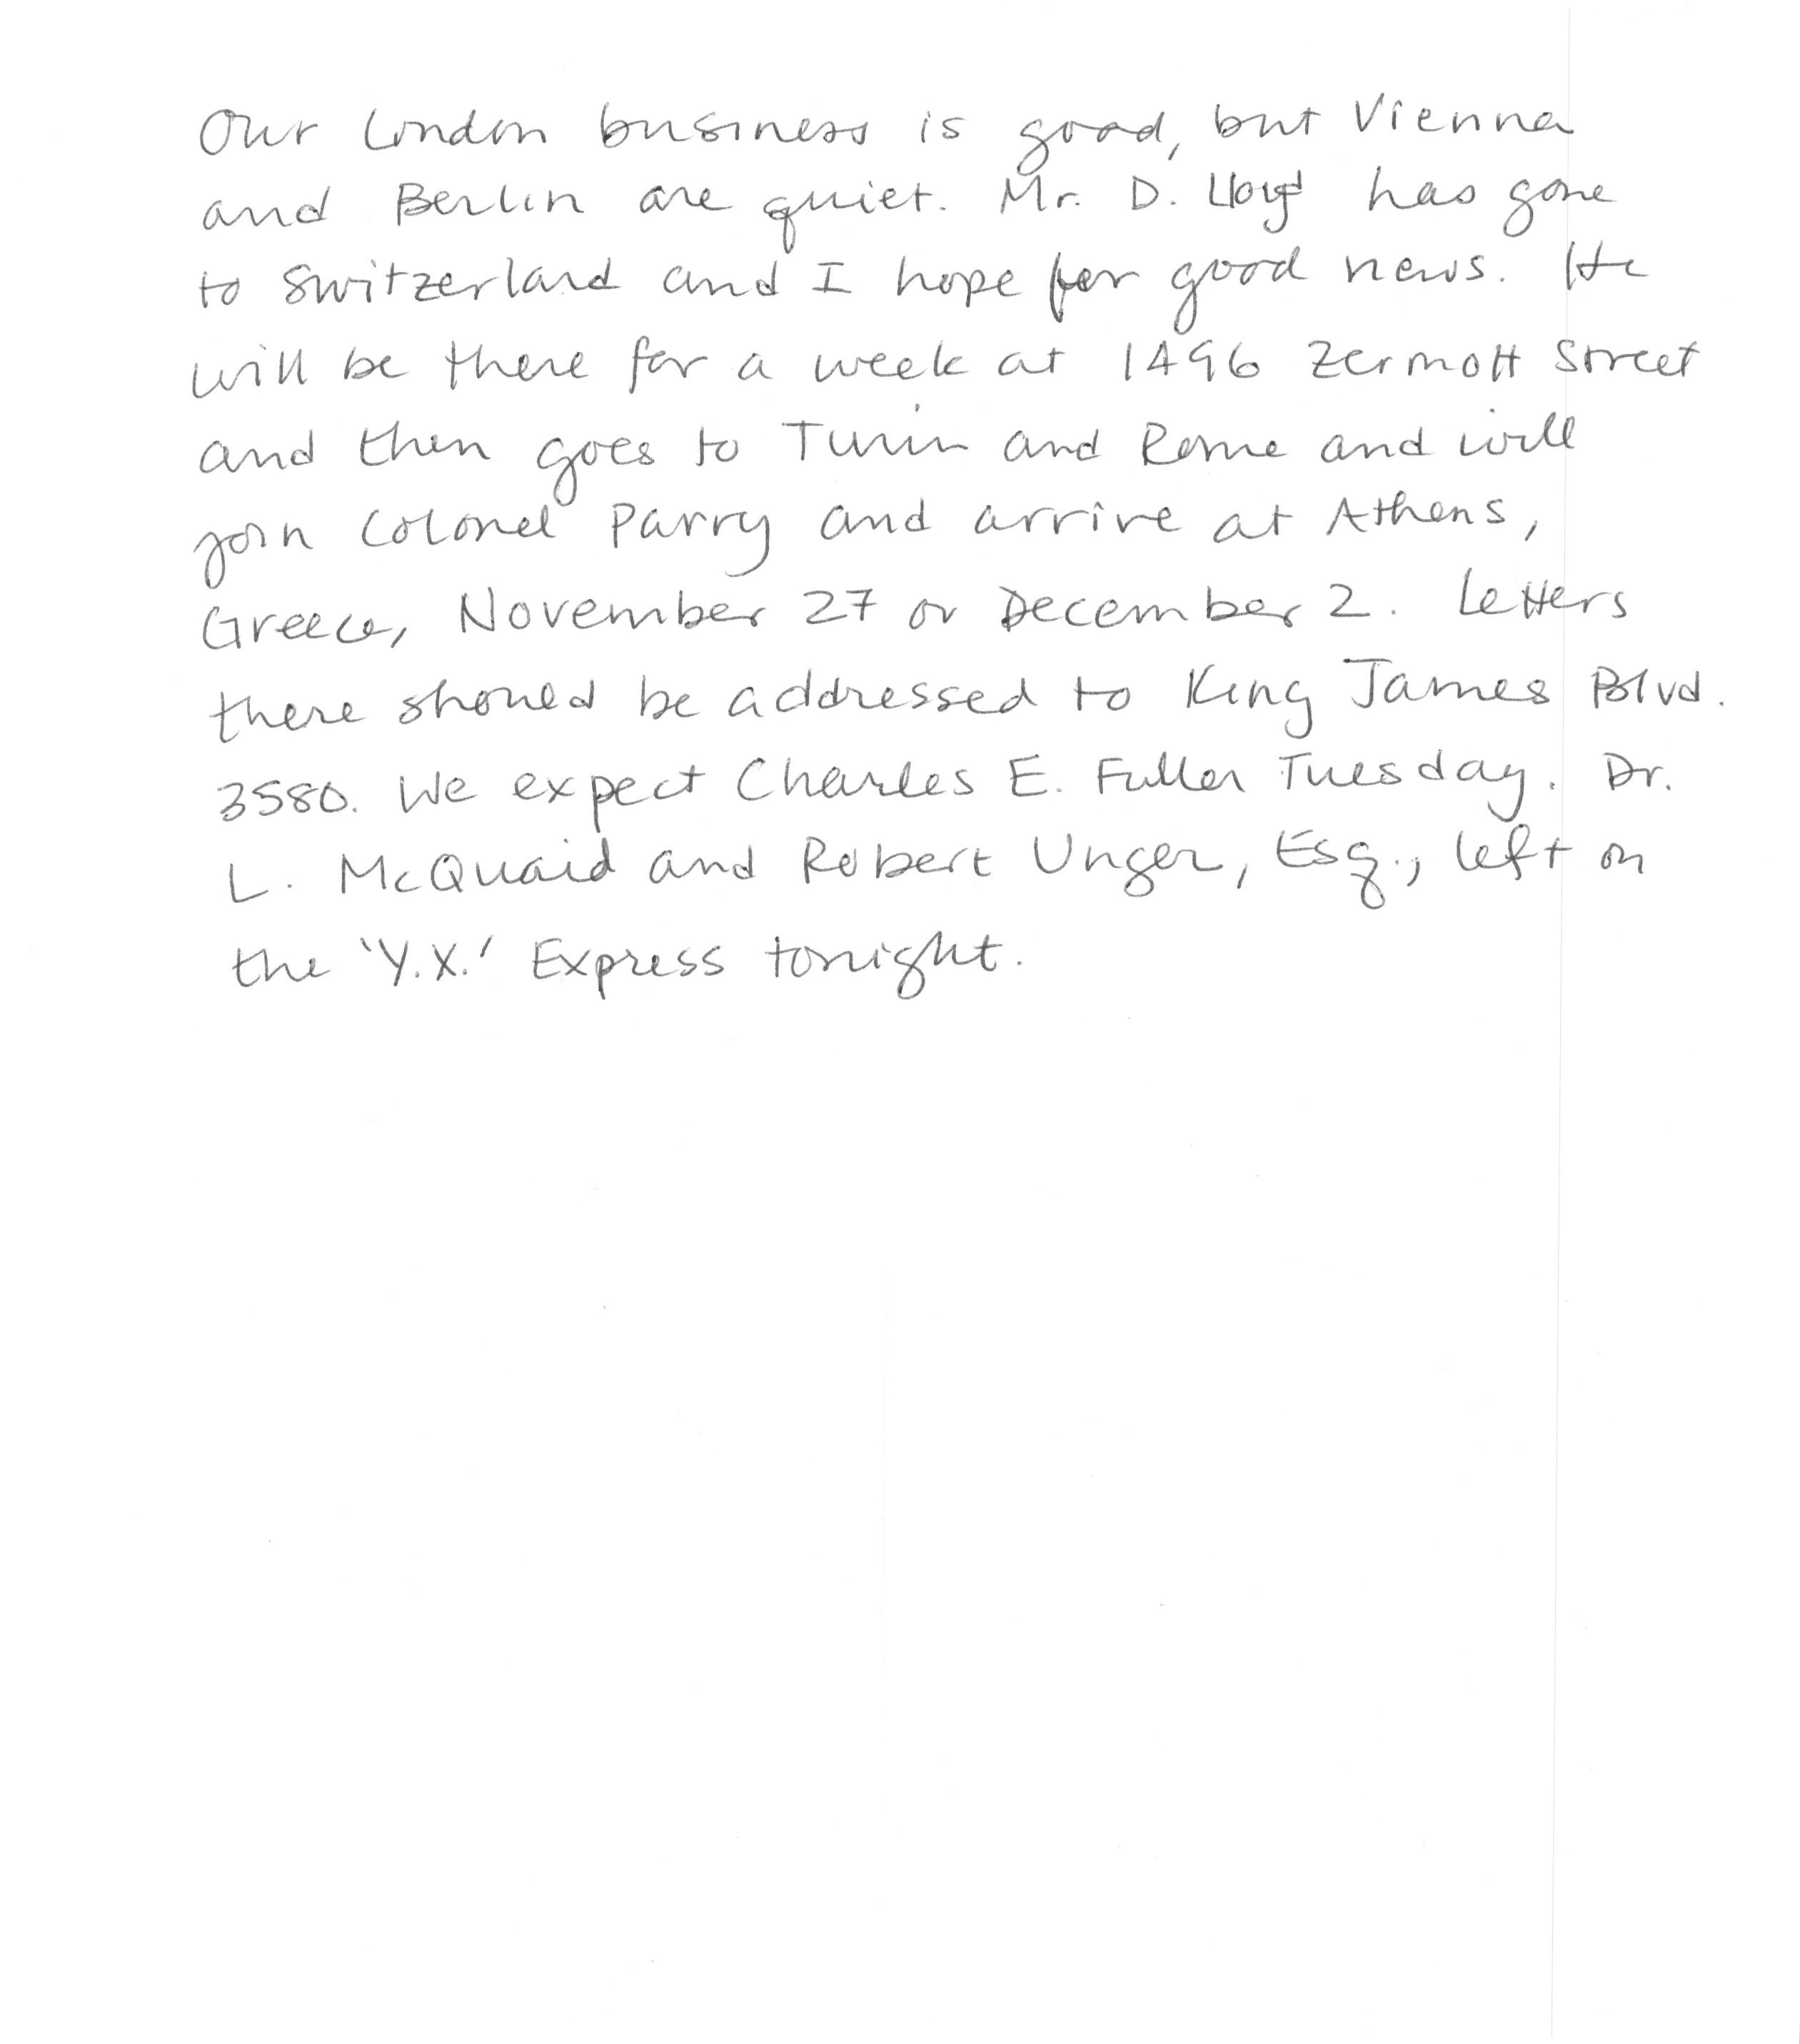 Our London business is good, but Vienna
and Berlin are quiet. Mr. D. Lloyd has gone
to Switzerland and I hope for good news. He
will be there for a week at 1496 Zermott Street
and then goes to Turin and Rome and will
join Colonel Parry and arrive at Athens,
Greece, November 27 or December 2. Letters
there should be addressed to King James Blvd.
3580. We expect Charles E. Fuller Tuesday. Dr.
L. McQuaid and Robert Unger, Esq., left on
the 'Y.X.' Express tonight.